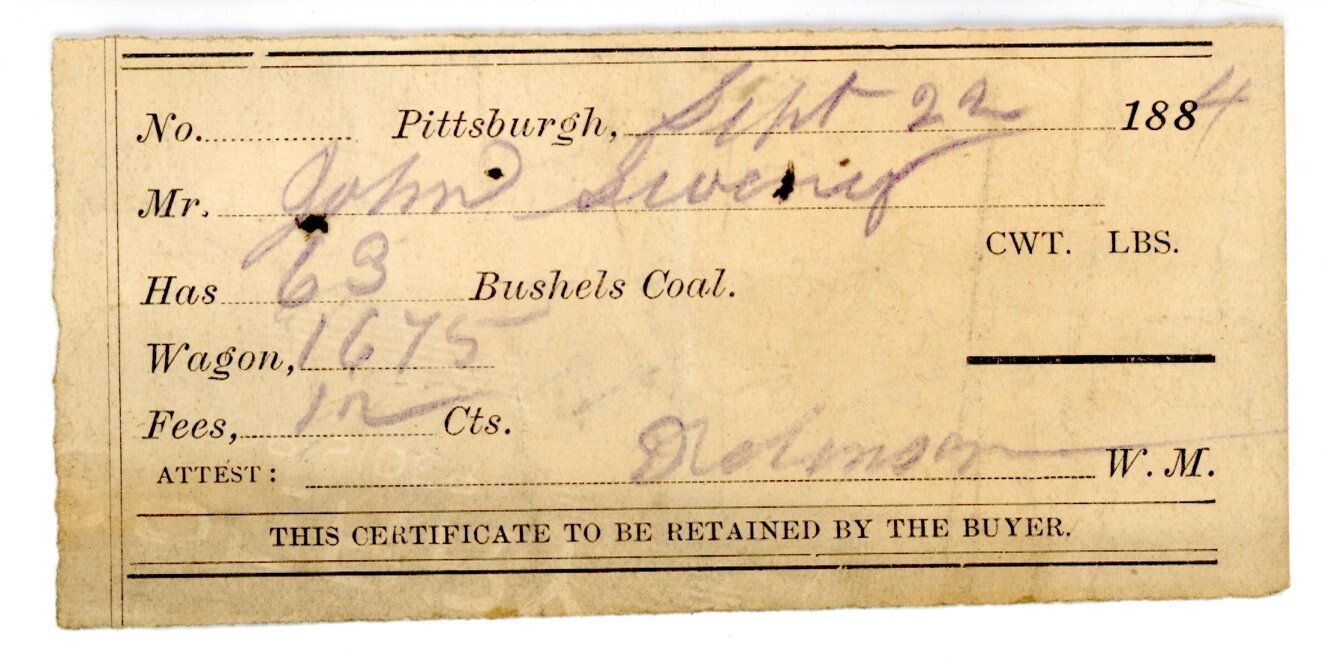 No. Pittsburgh, Sept 22 1884
Mr. John Sweeny
CWT. LBS.
Has 63 Bushels Coal.
Wagon, 1675
Fees, 12 Cts.
ATTEST: W. M.
THIS CERTIFICATE TO BE RETAINED BY THE BUYER.